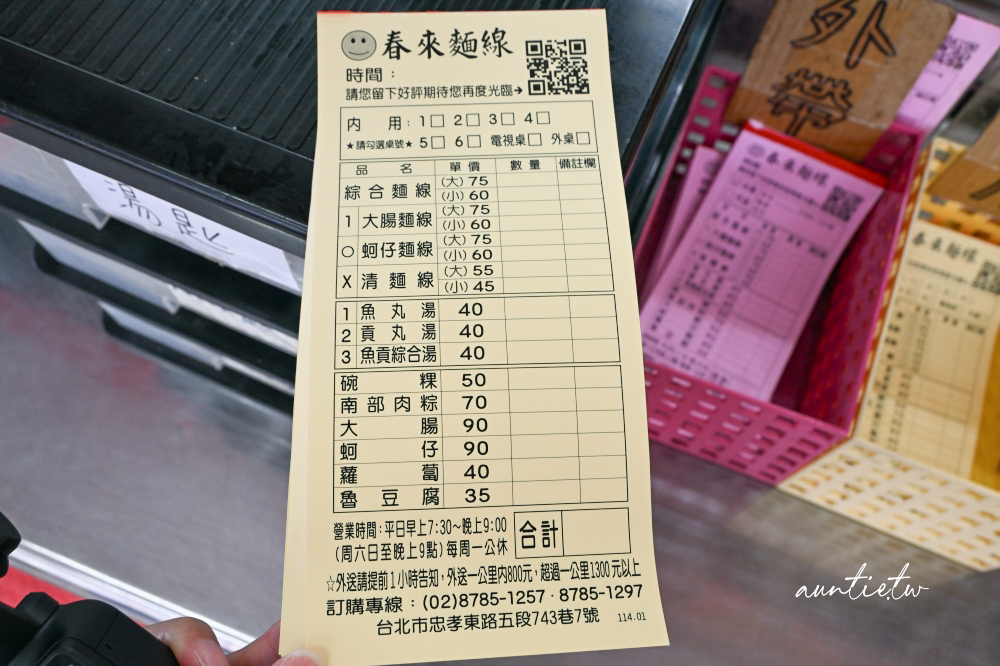 春來麵線
時間：
請您留下好評期待您再度光臨→
內 用：1□ 2□ 3□ 4□
★請勾選桌號★ 5□ 6□ 電視桌□ 外桌□
品名 單價 數量 備註欄
綜合麵線 (大) 75
(小) 60
1 大腸麵線 (大) 75
(小) 60
○ 蚵仔麵線 (大) 75
(小) 60
X 清麵線 (大) 55
(小) 45
1 魚丸湯 40
2 貢丸湯 40
3 魚貢綜合湯 40
碗粿 50
南部肉粽 70
大腸 90
蚵仔 90
蘿蔔 40
魯豆腐 35
營業時間：平日早上7:30～晚上9:00
(周六日至晚上9點) 每周一公休
合計
☆外送請提前1小時告知，外送一公里內800元，超過一公里1300元以上
訂購專線：(02)8785-1257．8785-1297
台北市忠孝東路五段743巷7號 114.01
外帶
春來麵線
春來麵線
auntie.tw